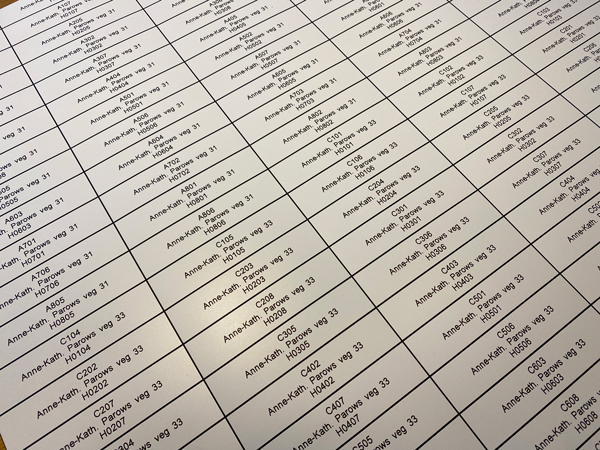 A603
Parows veg 31
H0603
A701
Parows veg 31
H0701
A706
Anne-Kath. Parows veg 31
H0706
A805
Anne-Kath. Parows veg 31
H0805
C104
Anne-Kath. Parows veg 33
H0104
C202
Anne-Kath. Parows veg 33
H0202
C207
Anne-Kath. Parows veg 33
H0207
Parows veg 33
A107
H0107
A205
Anne-Kath. Parows veg 31
H0205
A302
Anne-Kath. Parows veg 31
H0302
A307
Anne-Kath. Parows veg 31
H0307
A404
Anne-Kath. Parows veg 31
H0404
A501
Anne-Kath. Parows veg 31
H0501
A506
Anne-Kath. Parows veg 31
H0506
A604
Anne-Kath. Parows veg 31
H0604
A702
Anne-Kath. Parows veg 31
H0702
A801
Anne-Kath. Parows veg 31
H0801
A806
Anne-Kath. Parows veg 31
H0806
C105
Anne-Kath. Parows veg 33
H0105
C203
Anne-Kath. Parows veg 33
H0203
C208
Anne-Kath. Parows veg 33
H0208
C305
Anne-Kath. Parows veg 33
H0305
C402
Anne-Kath. Parows veg 33
H0402
C407
Anne-Kath. Parows veg 33
H0407
C505
A405
Anne-Kath. Parows veg 31
H0405
A502
Anne-Kath. Parows veg 31
H0502
A507
Anne-Kath. Parows veg 31
H0507
A605
Anne-Kath. Parows veg 31
H0605
A703
Anne-Kath. Parows veg 31
H0703
A802
Anne-Kath. Parows veg 31
H0802
C101
Anne-Kath. Parows veg 33
H0101
C106
Anne-Kath. Parows veg 33
H0106
C204
Anne-Kath. Parows veg 33
H0204
C301
Anne-Kath. Parows veg 33
H0301
C306
Anne-Kath. Parows veg 33
H0306
C403
Anne-Kath. Parows veg 33
H0403
C501
Anne-Kath. Parows veg 33
H0501
C506
Anne-Kath. Parows veg 33
H0506
C603
Anne-Kath. Parows veg 33
H0603
C608
Anne-Kath. Parows
H0608
A606
Anne-Kath. Parows veg 31
H0606
A704
Anne-Kath. Parows veg 31
H0704
A803
Anne-Kath. Parows veg 31
H0803
C102
Anne-Kath. Parows veg 33
H0102
C107
Anne-Kath. Parows veg 33
H0107
C205
Anne-Kath. Parows veg 33
H0205
C302
Anne-Kath. Parows veg 33
H0302
C307
Anne-Kath. Parows veg 33
H0307
C404
Anne-Kath. Parows veg
H0404
Anne-Kath.
C103
Anne-Kath. Parows
H0103
C201
Anne-Kath. Parows
H0201
Anne-Kath.